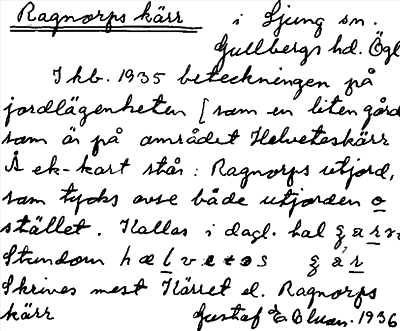 Ragnorps kärr i Ljung sn.
Gullbergs hd. Ögl
I kb. 1935 beteckningen på
jordlägenheten [som en liten gård
som är på området Helveteskärr
Å ek-kart står: Ragnorps utjord,
som tycks avse både utjorden o
stället. Kallas i dagl. tal
Stundom
Skrives mest Kärret el. Ragnorps
kärr Gustaf E. 1936